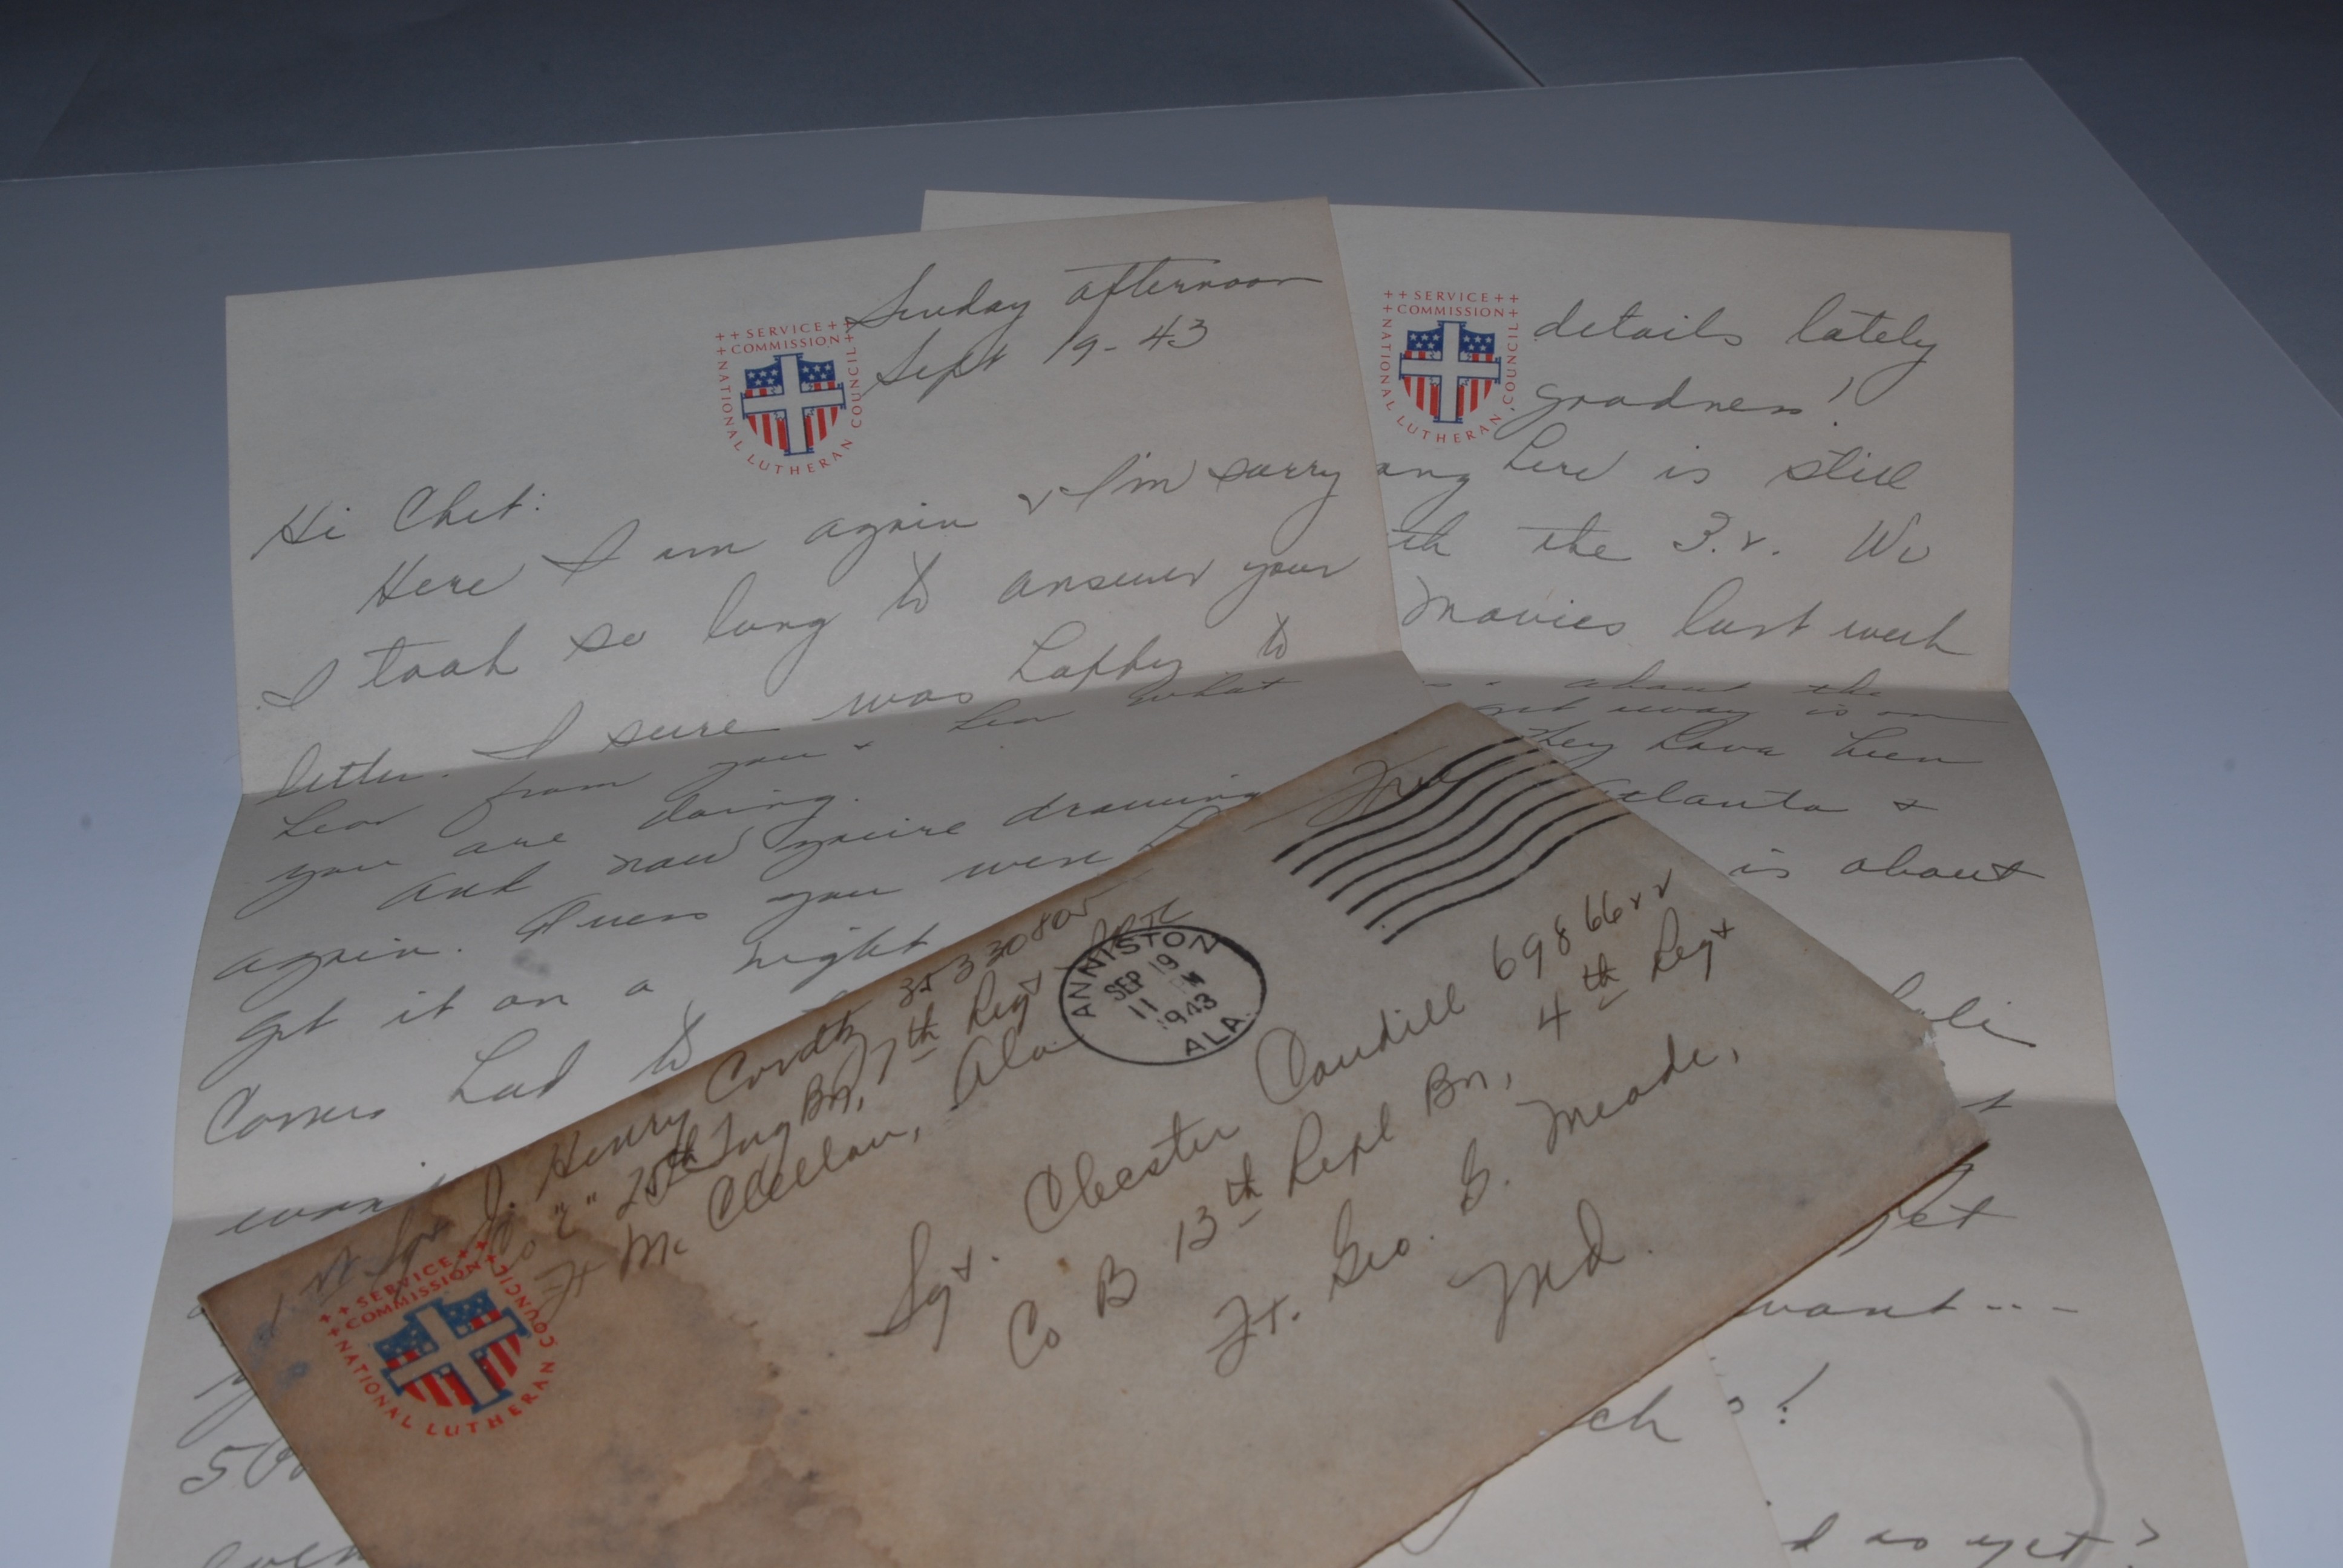 ++ SERVICE ++
+ COMMISSION +
NATIONAL LUTHERAN COUNCIL
Sunday afternoon
Sept 19-43
Hi Chet:
Here I am again & I'm sorry
I took so long to answer your
letter. I sure was happy to
hear from you & hear what
you are doing.
And now you're drawing
again. Guess you were
get it on a night
Corners had to
want
50
++ SERVICE ++
+ COMMISSION +
NATIONAL LUTHERAN COUNCIL
details lately
goodness!
ang here is still
the 3. We
movies last week
about the
get away is on
they have been
Atlanta &
is about
want ---
ch s!
d as yet?
1st Sgt J. Henry Cordtz 35330805
Co "C" 25th Ing Bn, 7th Regt
Ft McClellan, Ala
ANNISTON
SEP 19
11 PM
1943
ALA.
Free
Sgt. Chester Caudill 6986622
Co B 13th Repl Bn, 4th Regt
Ft. Geo. G. Meade,
Md.
++ SERVICE ++
+ COMMISSION +
NATIONAL LUTHERAN COUNCIL